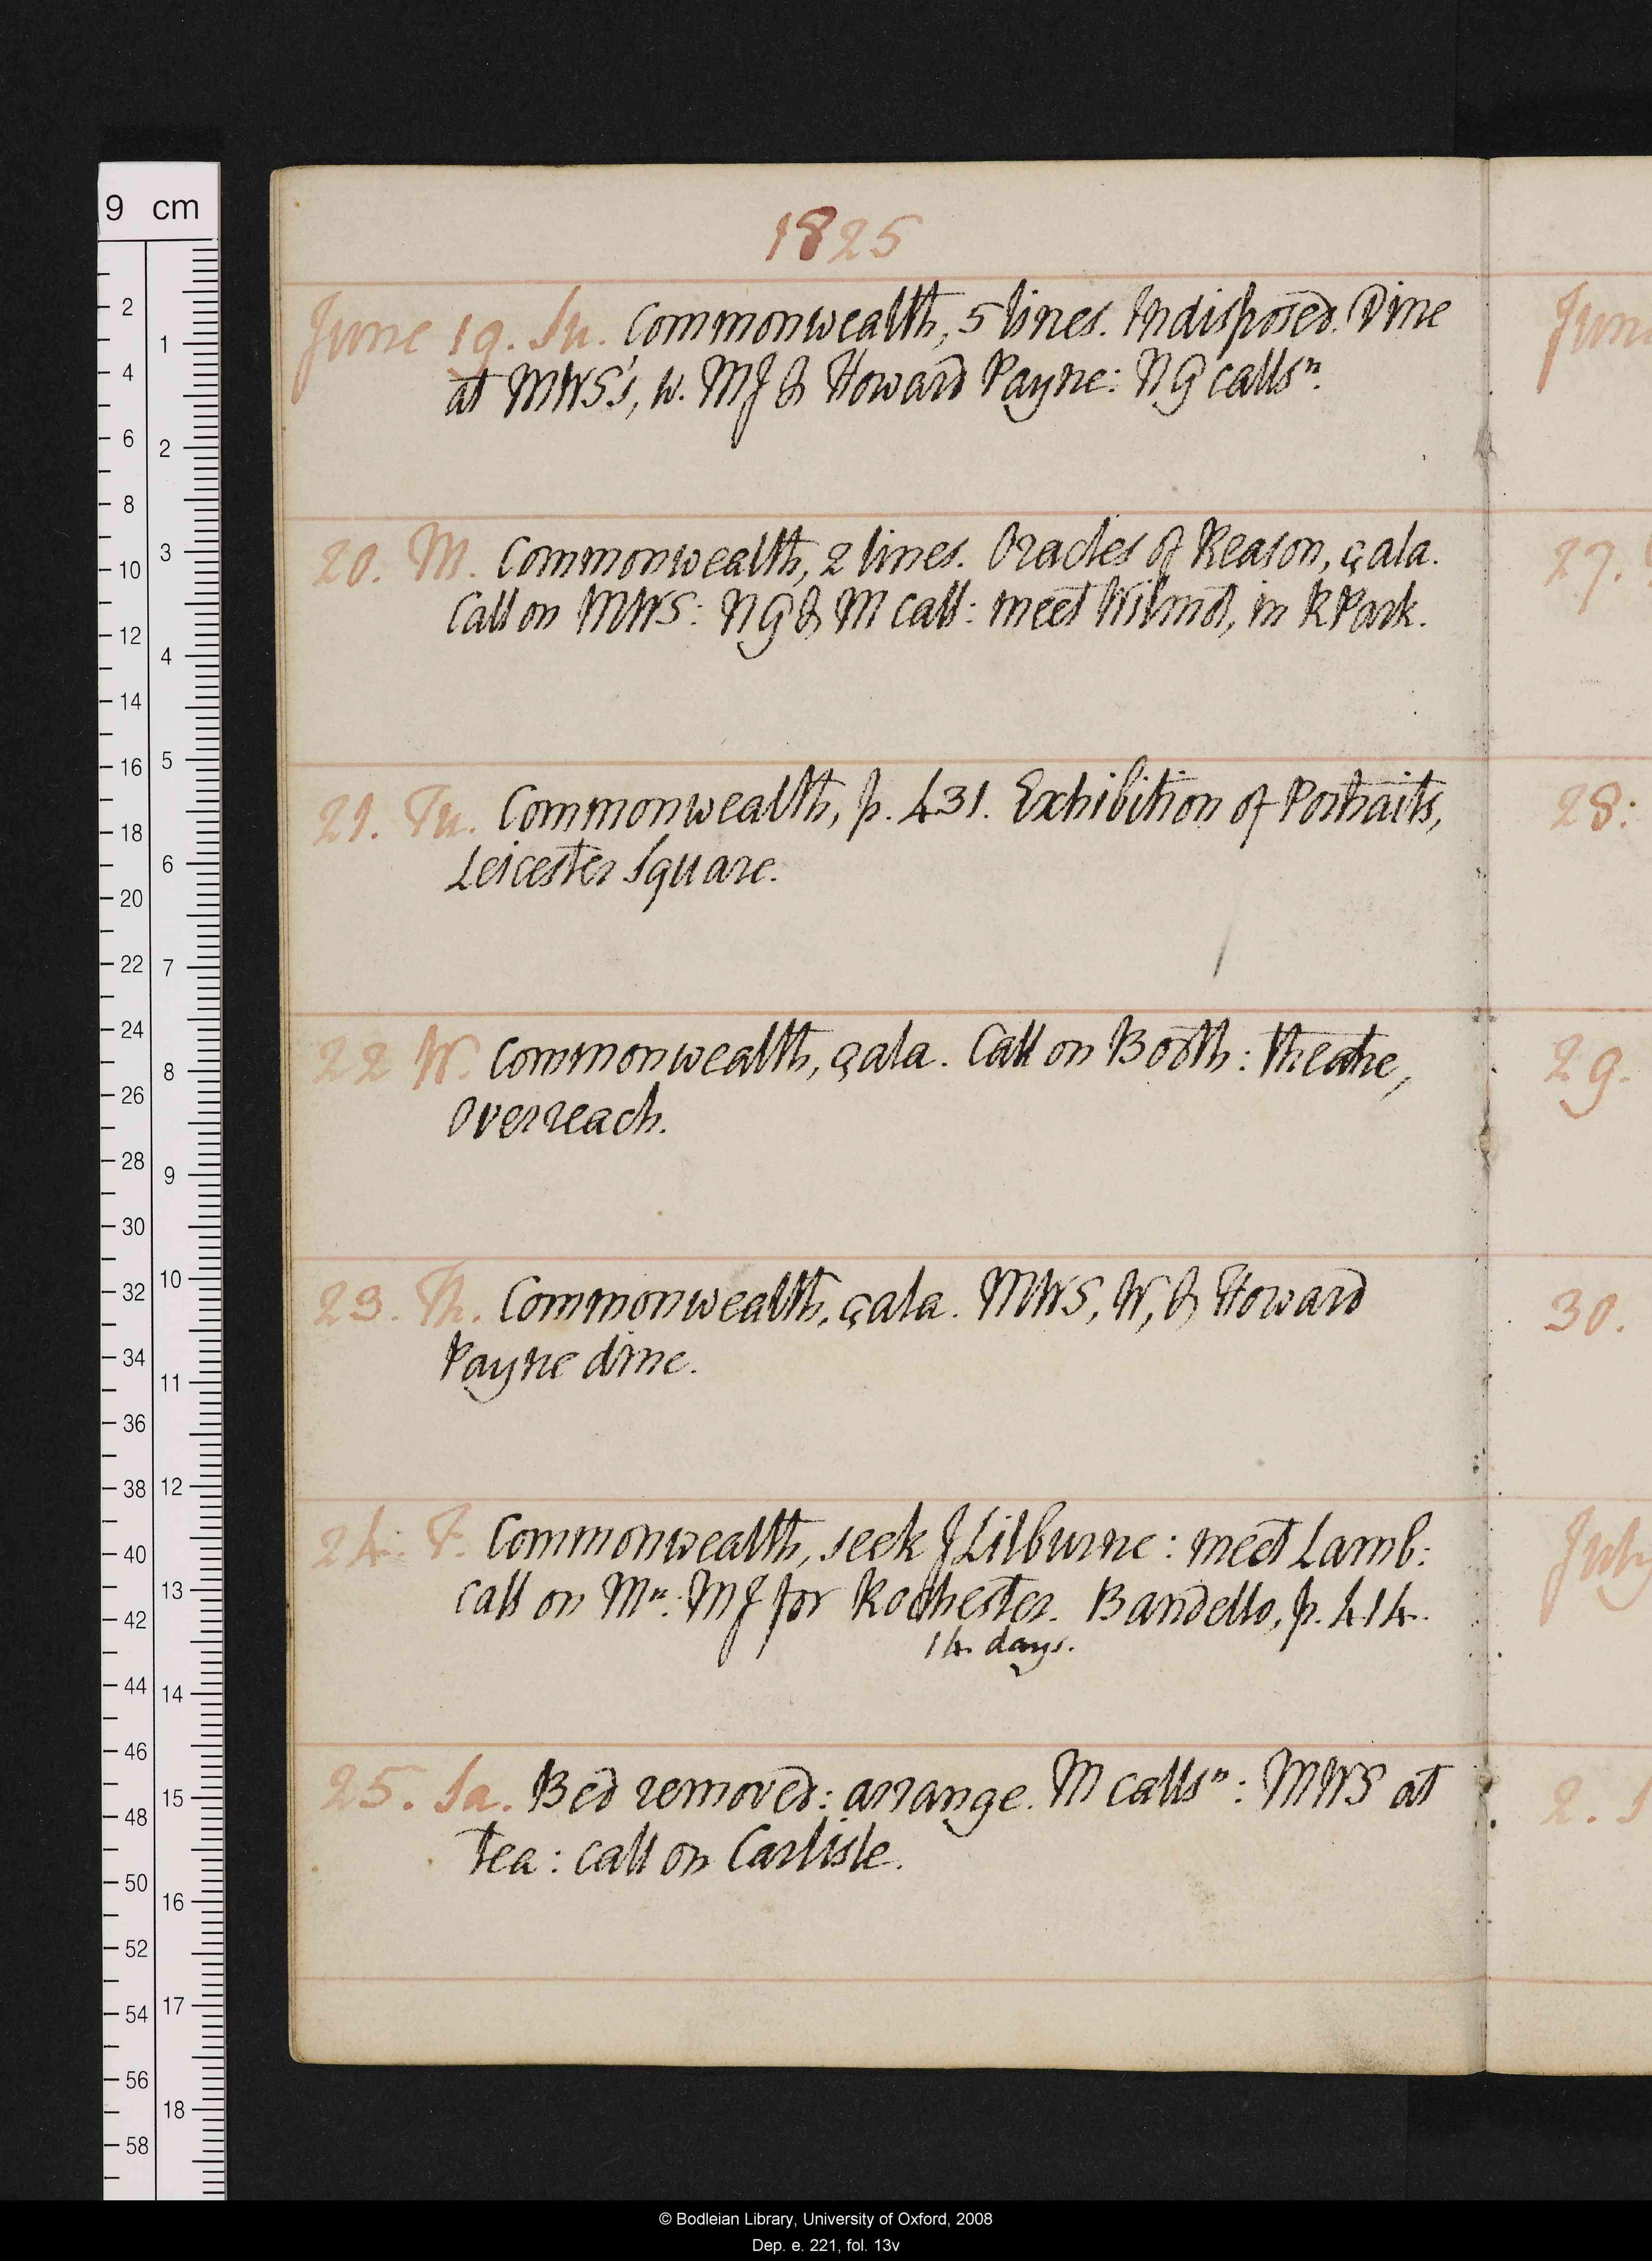 1825
June 19. Su. Commonwealth, 5 lines. Indisposed. Dine
at MWS's, w. MJ & Howard Payne: NG callsn.
20. M. Commonwealth, 2 lines. Oracles of Reason, çala.
Call on MWS: NG & M call: meet Wilmot, in R Park.
21. Tu. Commonwealth, p. 431. Exhibition of Portraits,
Leicester Square.
22 W. Commonwealth, çala. Call on Booth: theatre,
Overreach.
23. Th. Commonwealth, çala. MWS, W, & Howard
Payne dine.
24. F. Commonwealth, seek J Lilburne: meet Lamb:
call on Mn: MJ for Rochester. Bandello, p. 414.
14 days.
25. Sa. Bed removed: arrange. M callsn: MWS at
tea: call on Carlisle.
June
27.
28:
29.
30.
July
2. S
9 cm
2 4 6 8 10 12 14 16 18 20 22 24 26 28 30 32 34 36 38 40 42 44 46 48 50 52 54 56 58
1 2 3 4 5 6 7 8 9 10 11 12 13 14 15 16 17 18
© Bodleian Library, University of Oxford, 2008
Dep. e. 221, fol. 13v